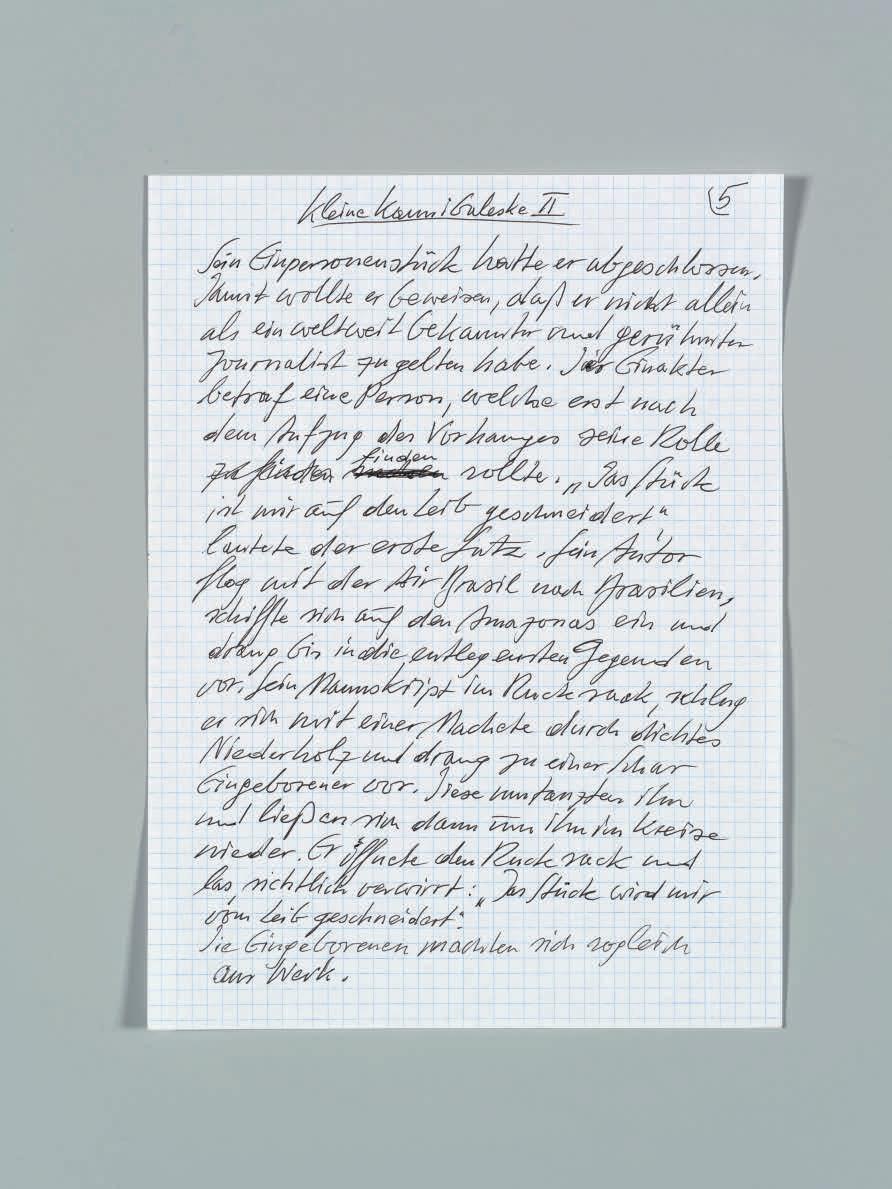 Kleine Kannibaleske II
5
Sein Einpersonenstück hatte er abgeschlossen.
Damit wollte er beweisen, daß er nicht allein
als ein weltweit bekannter und gerühmter
Journalist zu gelten habe. Der Einakter
betraf eine Person, welche erst nach
dem Aufzug des Vorhanges seine Rolle
finden
zu finden sollte. „Das Stück
ist mir auf den Leib geschneidert“
lautete der erste Satz. Sein Autor
flog mit der Air Brasil nach Brasilien,
schiffte sich auf den Amazonas ein und
drang bis in die entlegensten Gegenden
vor. Sein Manuskript im Rucksack, schlug
er sich mit einer Machete durch dichtes
Niederholz und drang zu einer Schar
Eingeborener vor. Diese umtanzten ihn
und ließen sich dann um ihn im Kreise
nieder. Er öffnete den Rucksack und
las sichtlich verwirrt: „Das Stück wird mir
vom Leib geschneidert“.
Die Eingeborenen machten sich sogleich
ans Werk.